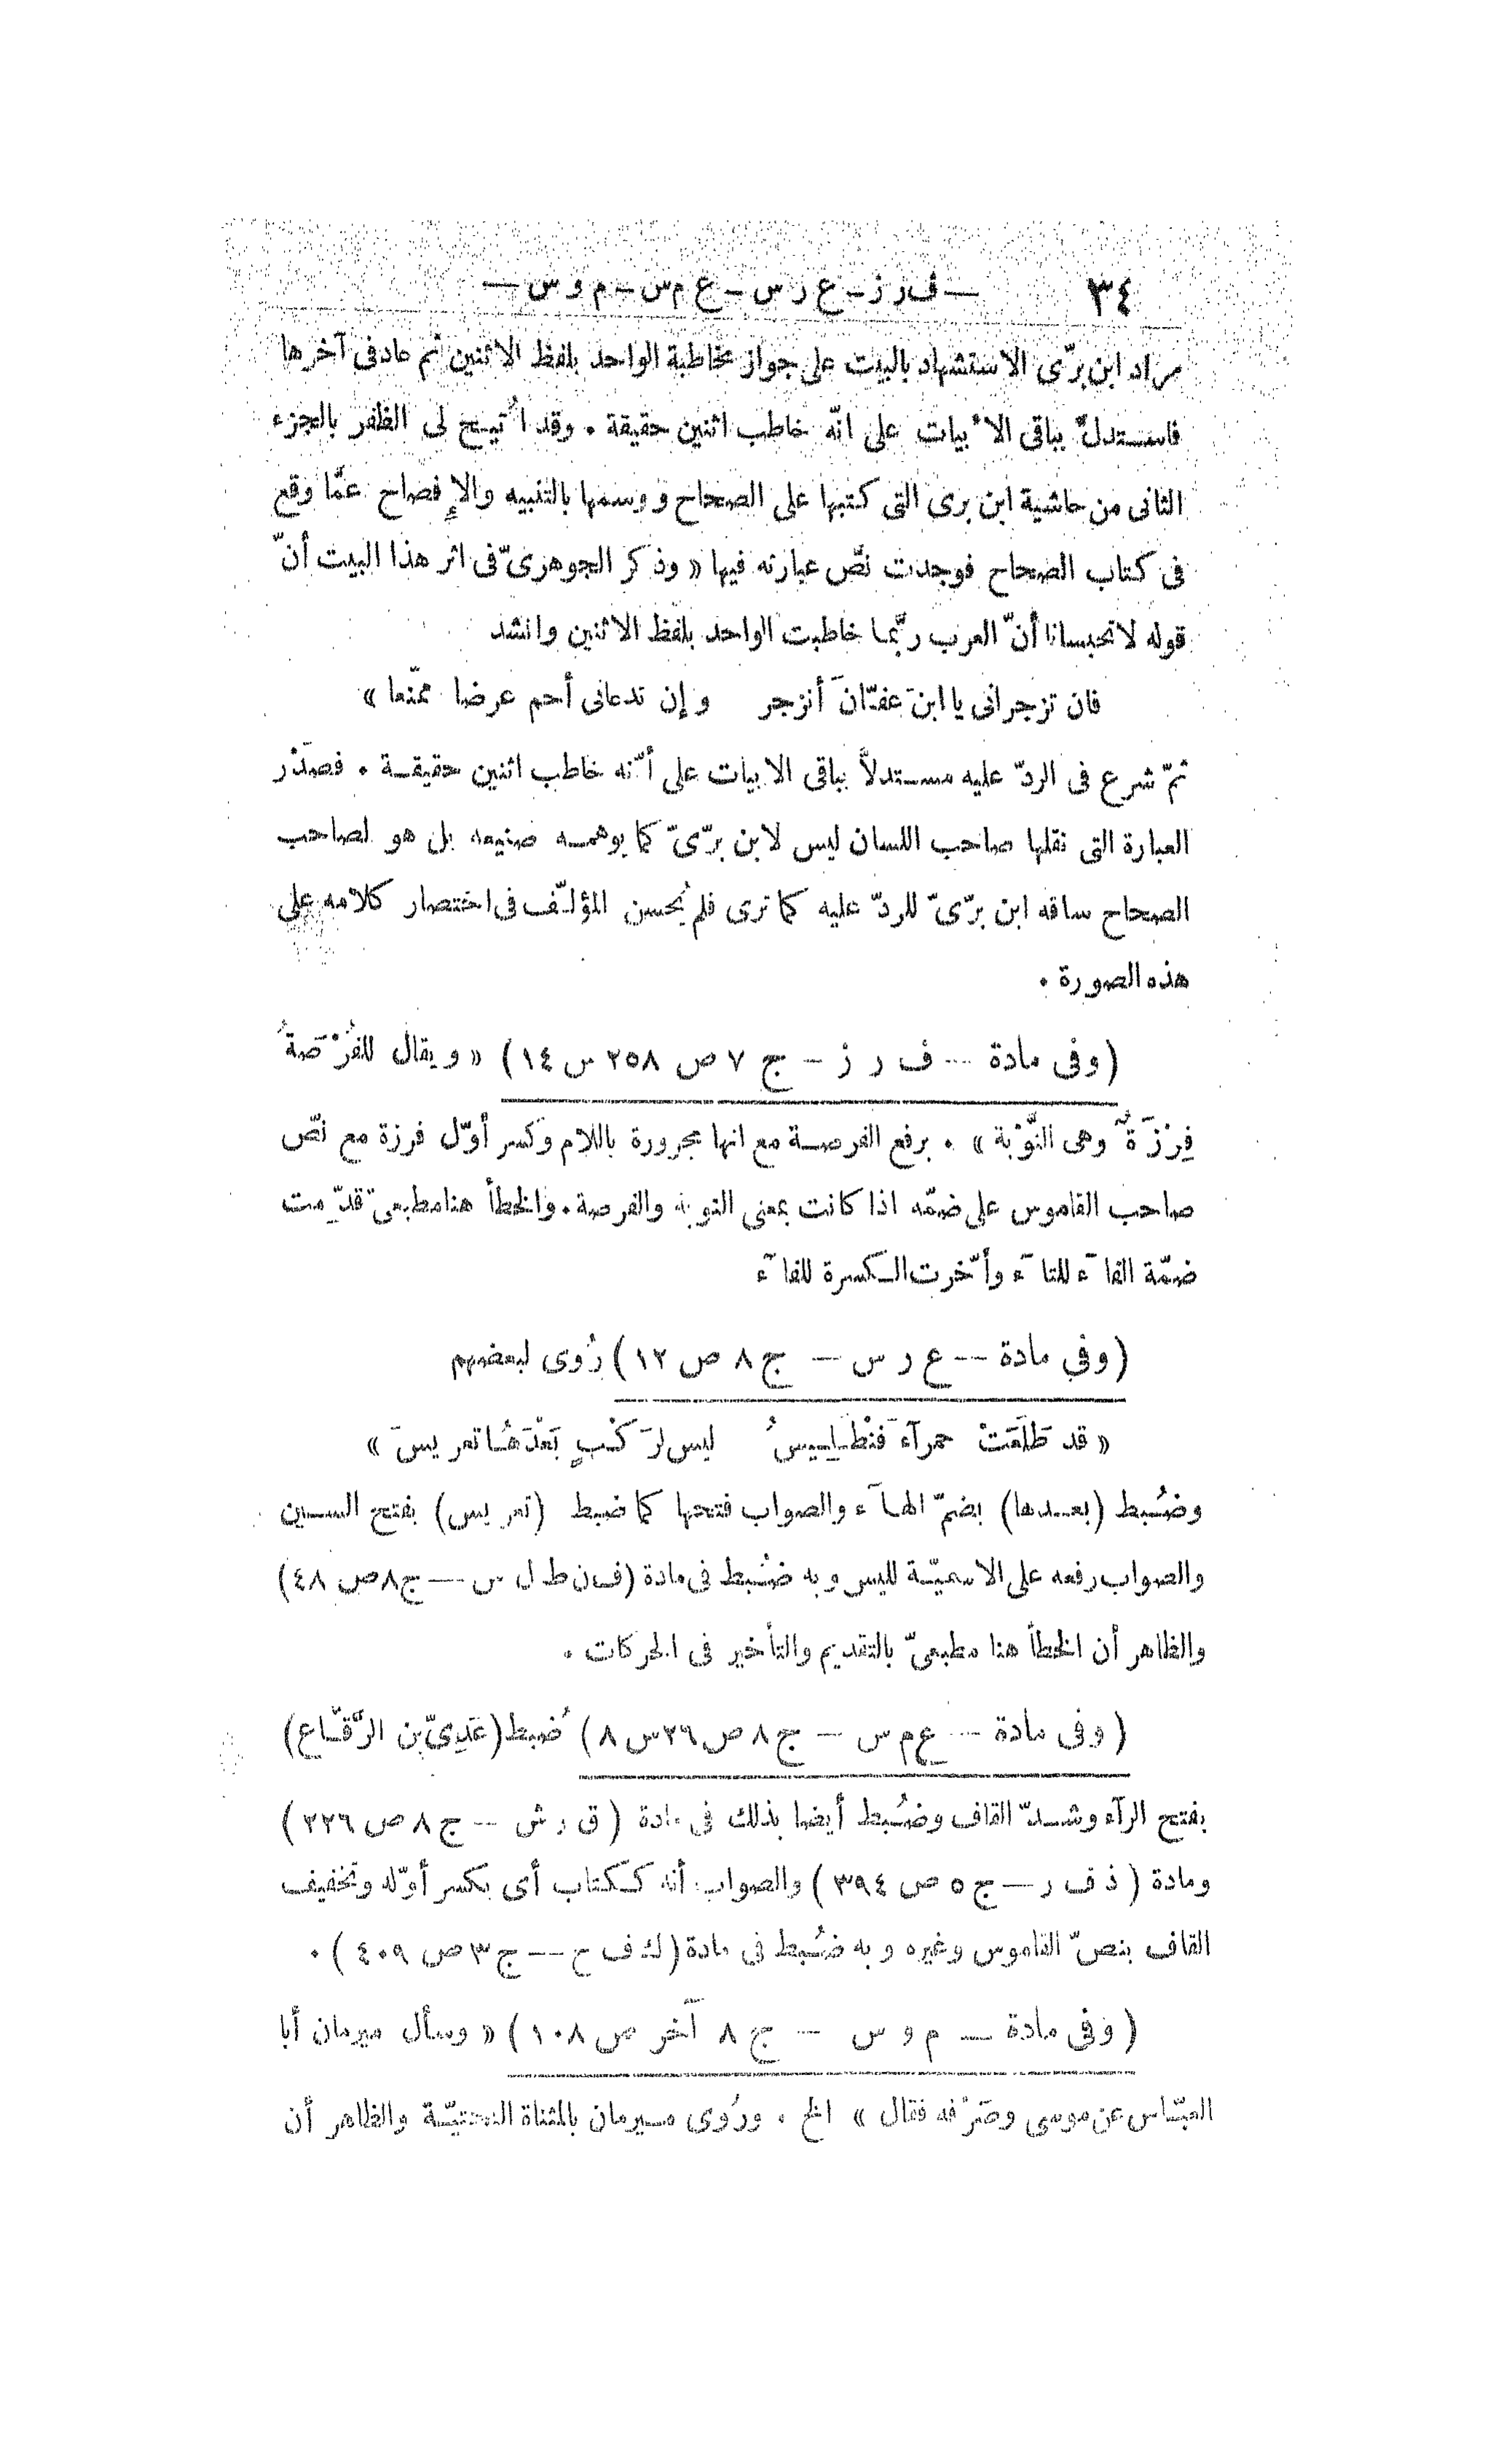 ٣٤ — ف ر ز — ع ر س — ع م س — م و س —
مراد ابن برّى الاستشهاد بالبيت على جواز مخاطبة الواحد بلفظ الاثنين ثم عاد فى آخرها
فاستدلّ بباقى الأبيات على انّه خاطب اثنين حقيقة . وقد اُتيح لى الظفر بالجزء
الثانى من حاشية ابن برى التى كتبها على الصحاح ووسمها بالتنبيه والإفصاح عمّا وقع
فى كتاب الصحاح فوجدت نصّ عبارته فيها « وذكر الجوهرىّ فى اثر هذا البيت أنّ
قوله لاتحبسانا أنّ العرب ربّما خاطبت الواحد بلفظ الاثنين وانشد
فان تزجرانى يا ابنَ عفّانَ أنزجر وإن تدعانى أحم عرضا ممّنعا »
ثمّ شرع فى الردّ عليه مستدلاًّ بباقى الابيات على أنّه خاطب اثنين حقيقة . فصَدْر
العبارة التى نقلها صاحب اللسان ليس لابن برّىّ كما يوهمه صنيعه بل هو لصاحب
الصحاح ساقه ابن برّىّ للردّ عليه كما ترى فلم يُحسن المؤلّف فى اختصار كلامه على
هذه الصورة .
(وفى مادة — ف ر ز — ج ٧ ص ٢٥٨ س ١٤) « ويقال للفُرْصَةُ
فِرْزَةٌ وهى النَّوْبة » . برفع الفرصة مع انها مجرورة باللام وكسر أوّل فرزة مع نصّ
صاحب القاموس على ضمّه اذا كانت بمعنى النوبة والفرصة . والخطأ هنا مطبعىّ قدّمت
ضمّة الفآء للتآء وأخّرت الكسرة للفآء
(وفى مادة — ع ر س — ج ٨ ص ١٢) رُوى لبعضهم
« قد طَلَعَتْ حمرآءَ فَنْطَلِيسُ ليس لرَكْبٍ بَعْدَهُا تعريسَ »
وضُبط (بعدها) بضمّ الهآء والصواب فتحها كما ضبط (تعريس) بفتح السين
والصواب رفعه على الاسميّة لليس وبه ضُبط فى مادة (ف ن ط ل س — ج ٨ ص ٤٨)
والظاهر أن الخطأ هنا مطبعىّ بالتقديم والتأخير فى الحركات .
(وفى مادة — ع م س — ج ٨ ص ٢٦ س ٨) ضُبط (عَدِىّ بن الرَّقّاع)
بفتح الرآء وشدّ القاف وضُبط أيضا بذلك فى مادة (ق ر ش — ج ٨ ص ٢٢٦)
ومادة (ذ ف ر — ج ٥ ص ٣٩٤) والصواب أنه ككتاب أى بكسر أوّله وتخفيف
القاف بنصّ القاموس وغيره وبه ضُبط فى مادة (ك ف ح — ج ٣ ص ٤٠٩) .
(وفى مادة — م و س — ج ٨ آخر ص ١٠٨) « وسأل ميرمان أبا
العبّاس عن موسى وصَرْفه فقال » الخ . ورُوى ميرمان بالمثناة التحتيّة والظاهر أن